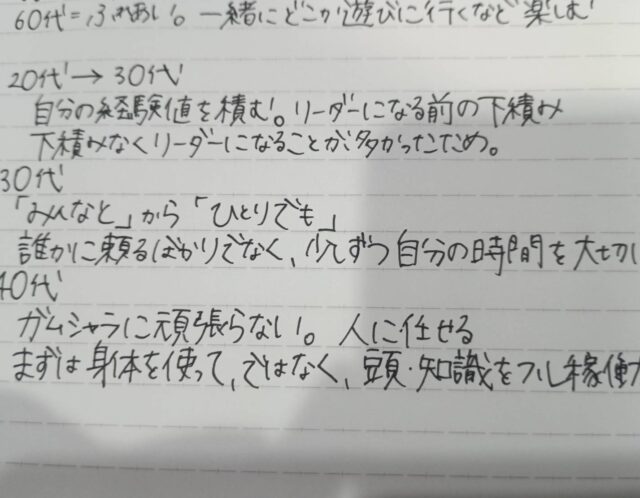 60代=ふれあい。一緒にどこか遊びに行くなど楽しむ
20代→30代
自分の経験値を積む。リーダーになる前の下積み
下積みなくリーダーになることが多かったため。
30代
「みんなと」から「ひとりでも」
誰かに頼るばかりでなく、少しずつ自分の時間を大切に
40代
ガムシャラに頑張らない。人に任せる
まずは身体を使って、ではなく、頭・知識をフル稼働